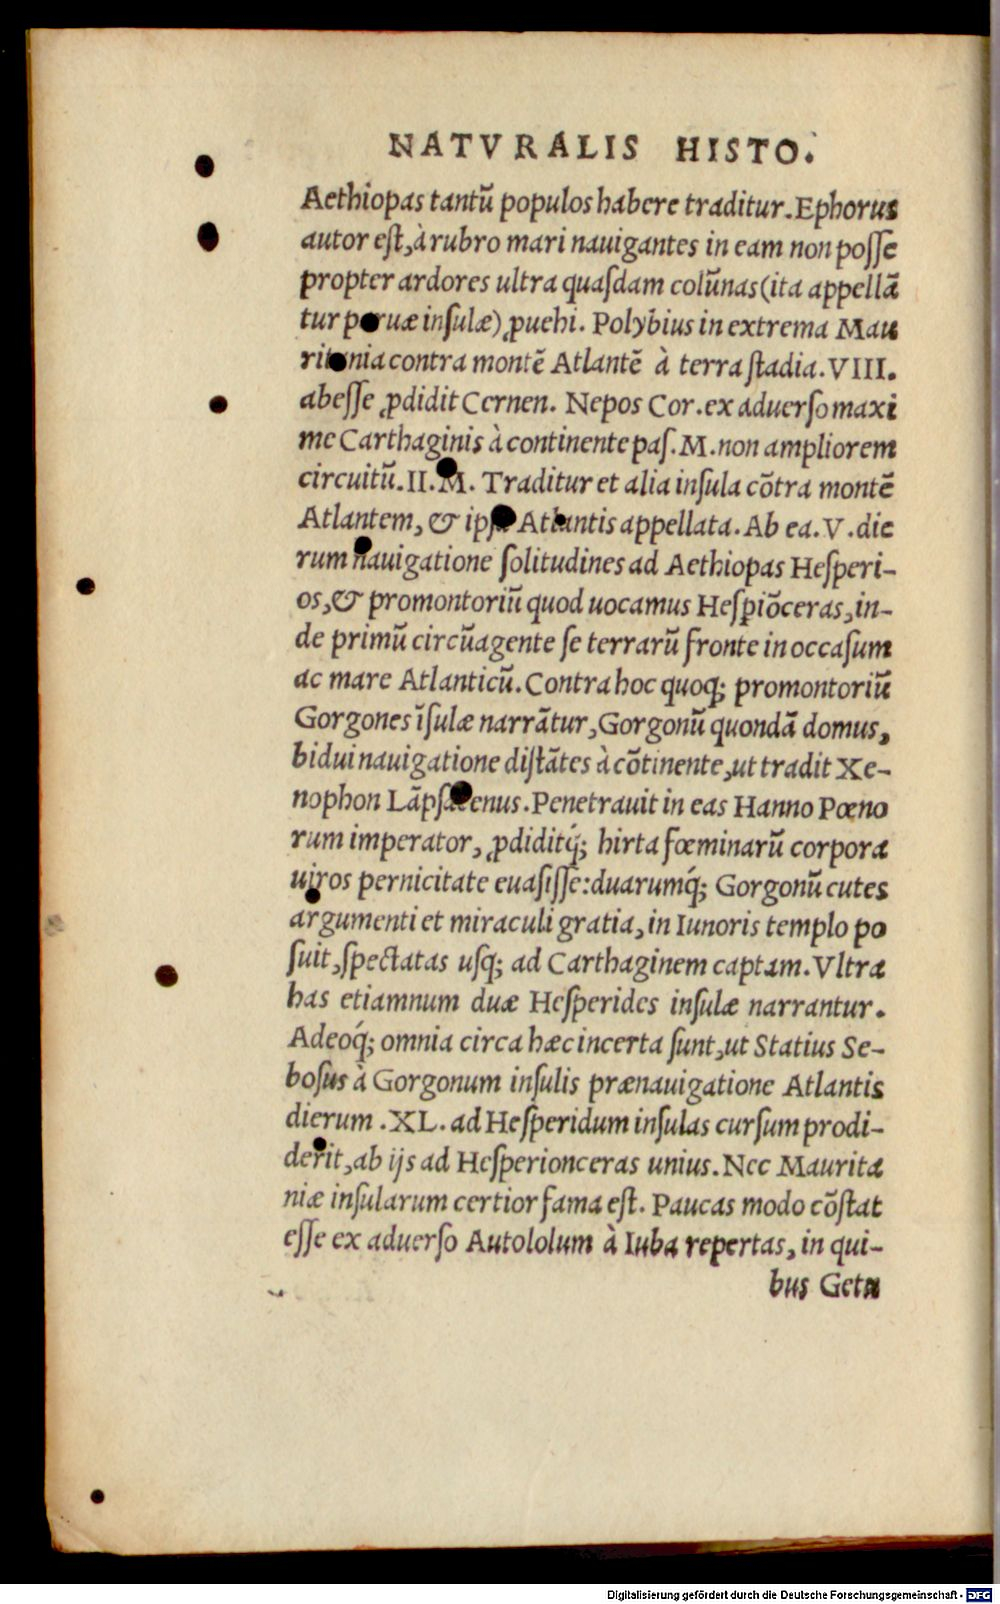 NATVRALIS HISTO.
Aethiopas tantũ populos habere traditur. Ephorus
autor eſt, à rubro mari nauigantes in eam non poſſe
propter ardores ultra quaſdam colũnas (ita appellã
tur paruæ inſulæ) ꝓuehi. Polybius in extrema Mau
ritania contra montẽ Atlantẽ à terra ſtadia. VIII.
abeſſe ꝓdidit Cernen. Nepos Cor. ex aduerſo maxi
me Carthaginis à continente paſ. M. non ampliorem
circuitũ. II. M. Traditur et alia inſula cõtra montẽ
Atlantem, & ipſa Atlantis appellata. Ab ea. V. die
rum nauigatione ſolitudines ad Aethiopas Heſperi-
os, & promontoriũ quod uocamus Heſpiõceras, in-
de primũ circũagente ſe terrarũ fronte in occaſum
ac mare Atlanticũ. Contra hoc quoq; promontoriũ
Gorgones ĩſulæ narrãtur, Gorgonũ quondã domus,
bidui nauigatione diſtãtes à cõtinente, ut tradit Xe-
nophon Lãpſacenus. Penetrauit in eas Hanno Pœno
rum imperator, ꝓdiditq́; hirta fœminarũ corpora
uiros pernicitate euaſiſſe: duarumq́; Gorgonũ cutes
argumenti et miraculi gratia, in Iunoris templo po
ſuit, ſpectatas uſq; ad Carthaginem captam. Vltra
has etiamnum duæ Heſperides inſulæ narrantur.
Adeoq́; omnia circa hæc incerta ſunt, ut Statius Se-
boſus à Gorgonum inſulis prænauigatione Atlantis
dierum . XL. ad Heſperidum inſulas curſum prodi-
derit, ab ijs ad Heſperionceras unius. Nec Maurita
niæ inſularum certior fama eſt. Paucas modo cõſtat
eſſe ex aduerſo Autololum à Iuba repertas, in qui-
bus Getu
Digitalisierung gefördert durch die Deutsche Forschungsgemeinschaft - DFG